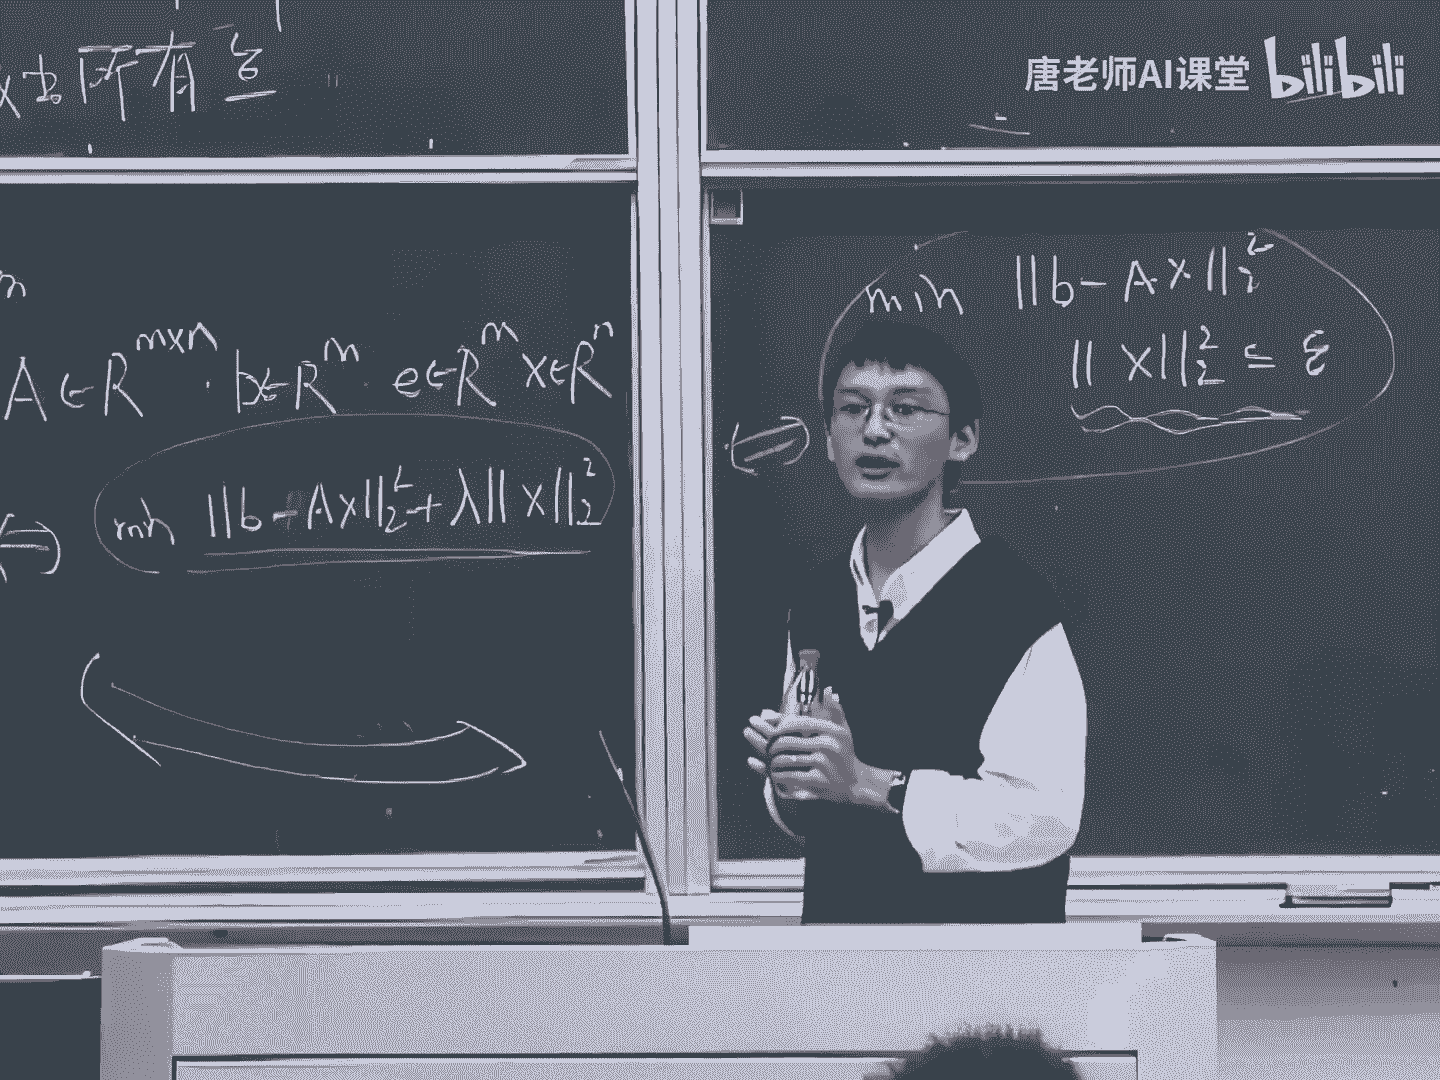 出所有
唐老师AI课堂 bilibili
m
A∈R^{m×n} · b∈R^m · e∈R^m x∈R^n
⇔ min ||b-Ax||_2^2+λ||x||_2^2
⇔ min ||b-Ax||_2^2
||x||_2^2 ≤ ε